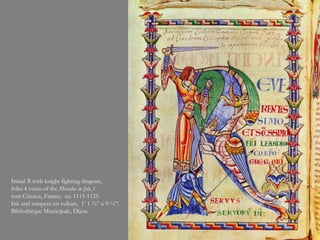 EVE
RENTIS
SIMO
ET SCISSIMO
FRI LEANDRO
COEPO
GREGORI
SERVVS
SERVORV DI
Initial R with knight fighting dragons,
folio 4 verso of the Moralia in Job, f
rom Citeaux, France, ca. 1115-1125.
Ink and tempera on vellum, 1' 1 ¾" x 9 ¼".
Bibliothèque Municipale, Dijon.